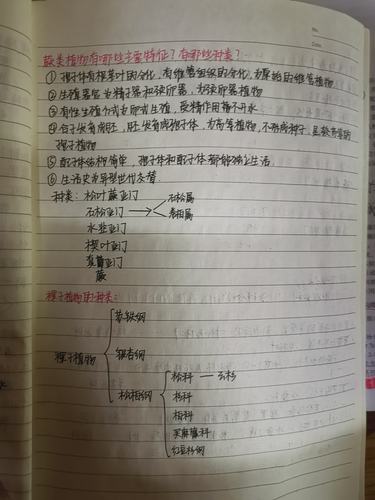 蕨类植物有哪些主要特征？有哪些种类？
① 孢子体有根茎叶的分化，有维管组织的分化，为原始的维管植物
② 生殖器官为精子器和颈卵器，为颈卵器植物
③ 有性生殖方式为卵式生殖，受精作用离不开水
④ 合子发育成胚，胚发育成孢子体，为高等植物，不形成种子，是较高等的
孢子植物
⑤ 配子体结构简单，孢子体和配子体都能独立生活
⑥ 生活史为异型世代交替
种类：松叶蕨亚门
石松亚门
石松属
卷柏属
水韭亚门
楔叶亚门
真蕨亚门
蕨
裸子植物的种类：
裸子植物
苏铁纲
银杏纲
松柏纲
松科 — 云杉
杉科
柏科
买麻藤科
红豆杉纲